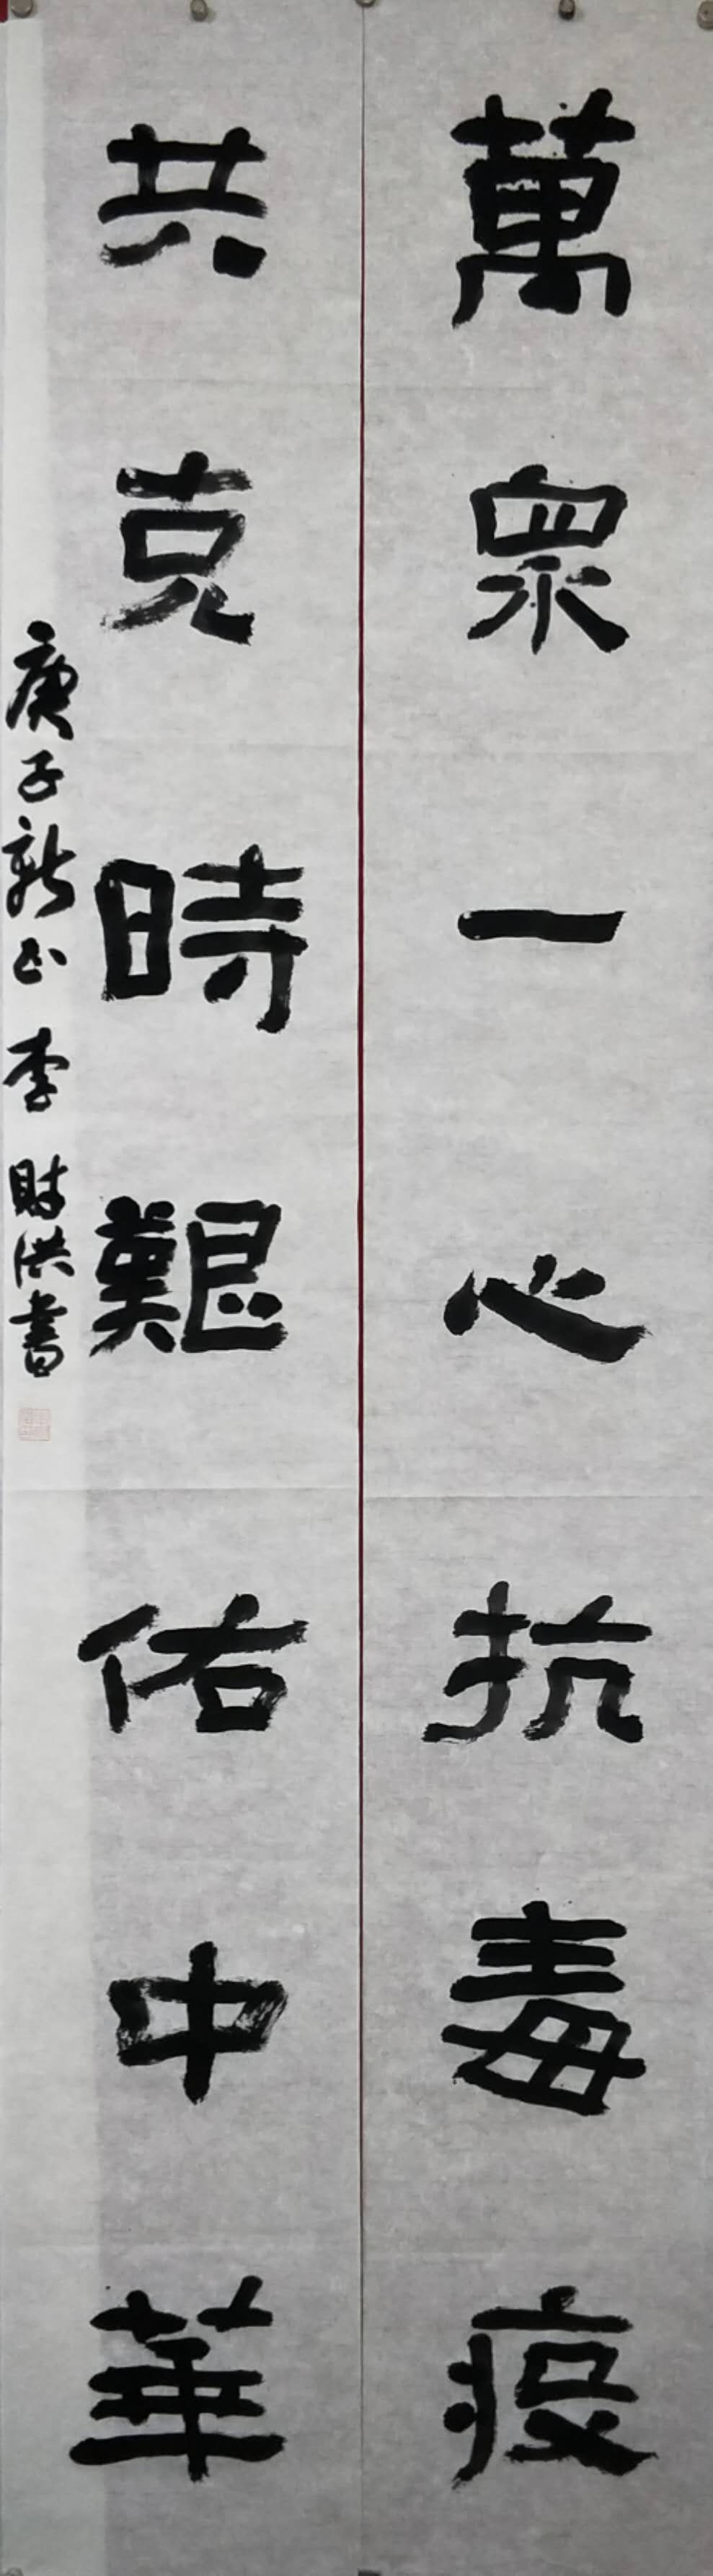 萬眾一心抗毒疫
共克時艱佑中華
庚子新正李財洪書